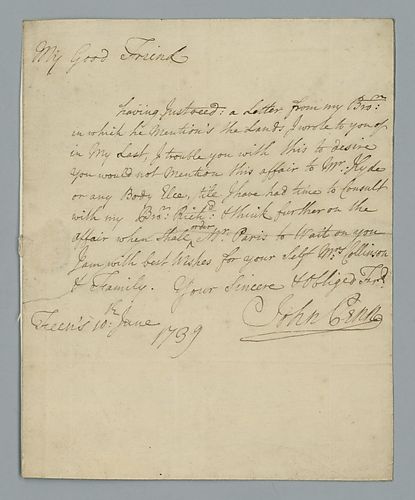 My Good Freind
having Just reced: a Letter from my Bror:
in which he Mention's the Lands I wrote to you of
in My Last, I trouble you with this to desire
you would not Mention this affair to Mr. Hyde
or any Body Else, till I have had time to Consult
with my Bror: Richd: & think further on the
affair when shall order Mr. Paris to Wait on you
I am with best Wishes for your Self Mrs. Collinson
& Family. Your Sincere & Obliged Frd.
John Penn
10th: June
1739